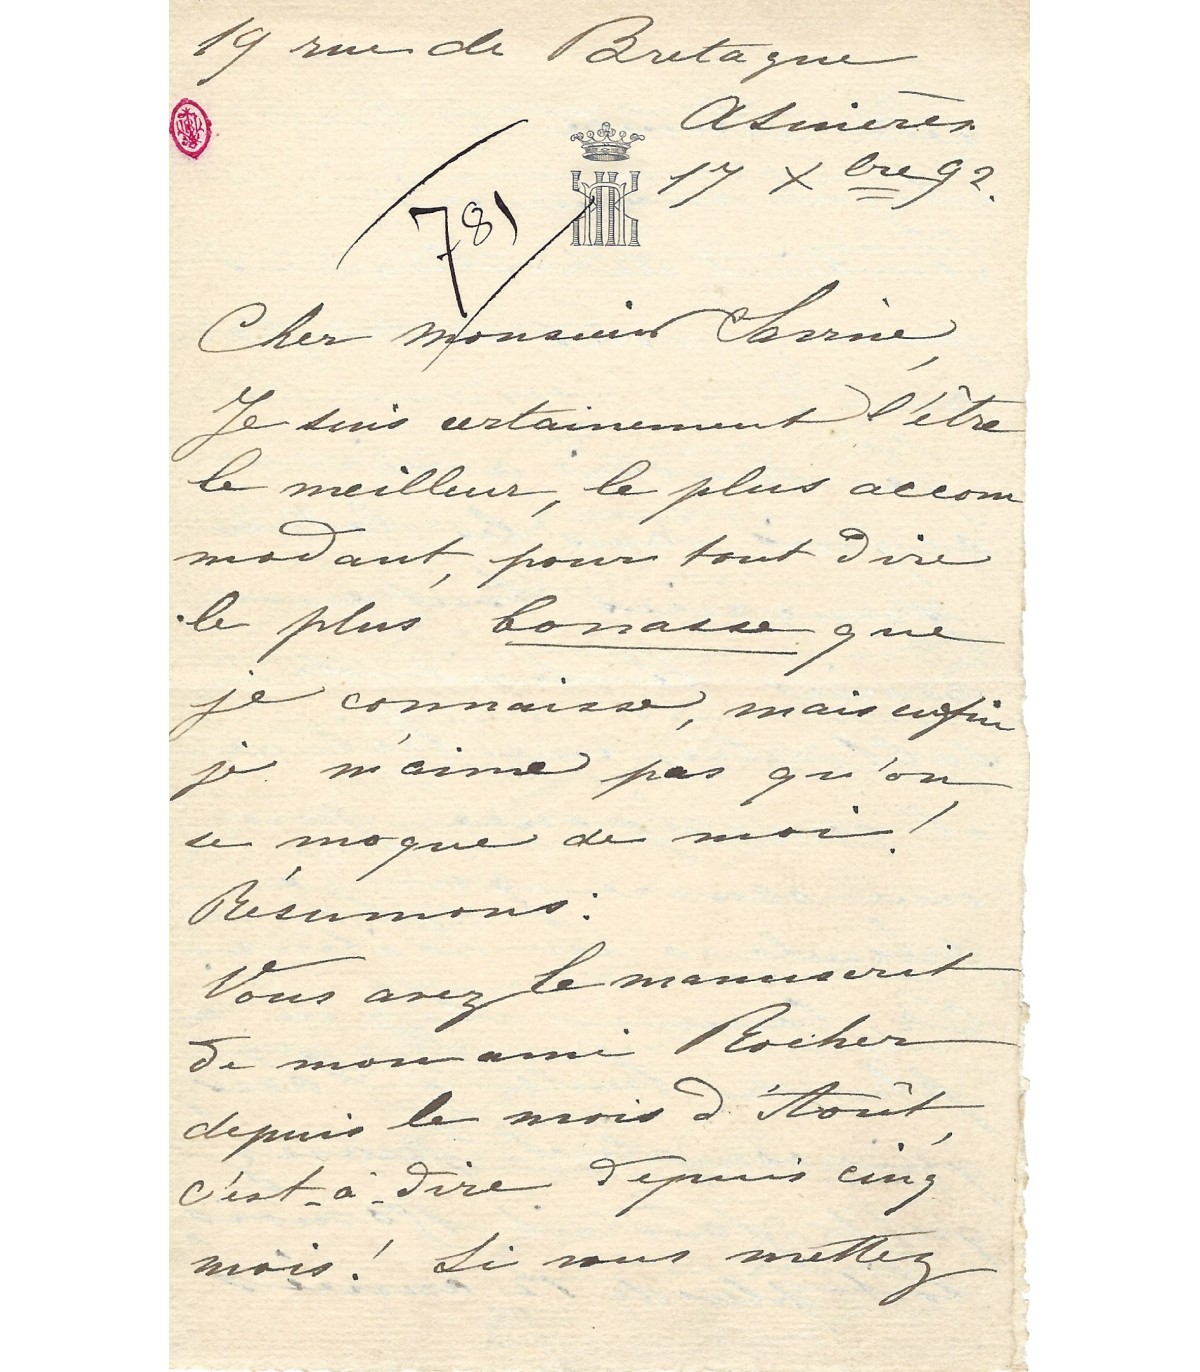 19 rue de Bretagne
Asnières
17 Xbre 92.
781
Cher Monsieur Savine,
Je suis certainement l'être
le meilleur, le plus accom
modant, pour tout dire
le plus bonasse que
je connaisse, mais enfin
je n'aime pas qu'on
se moque de moi !
Résumons :
Vous avez le manuscrit
de mon ami Rocher
depuis le mois d'Août,
c'est-à-dire depuis cinq
mois ! Si vous mettez